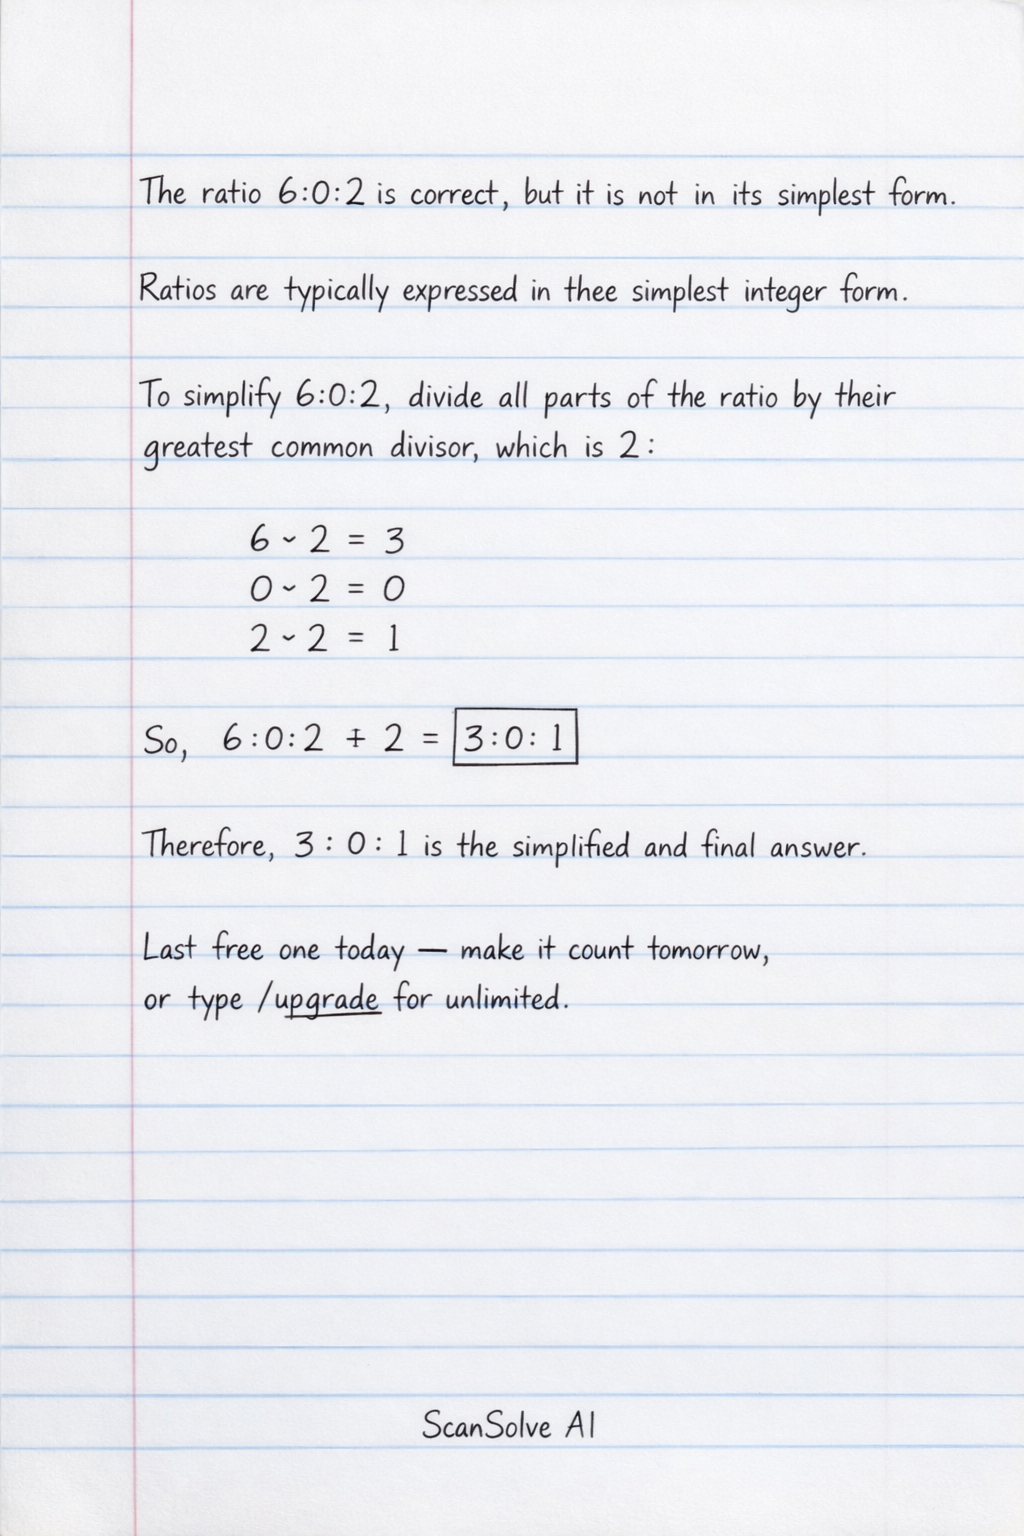 The ratio 6:0:2 is correct, but it is not in its simplest form.
Ratios are typically expressed in thee simplest integer form.
To simplify 6:0:2, divide all parts of the ratio by their
greatest common divisor, which is 2:
6 ~ 2 = 3
0 ~ 2 = 0
2 ~ 2 = 1
So, 6:0:2 ∓ 2 = 3:0:1
Therefore, 3:0:1 is the simplified and final answer.
Last free one today — make it count tomorrow,
or type /upgrade for unlimited.
ScanSolve AI